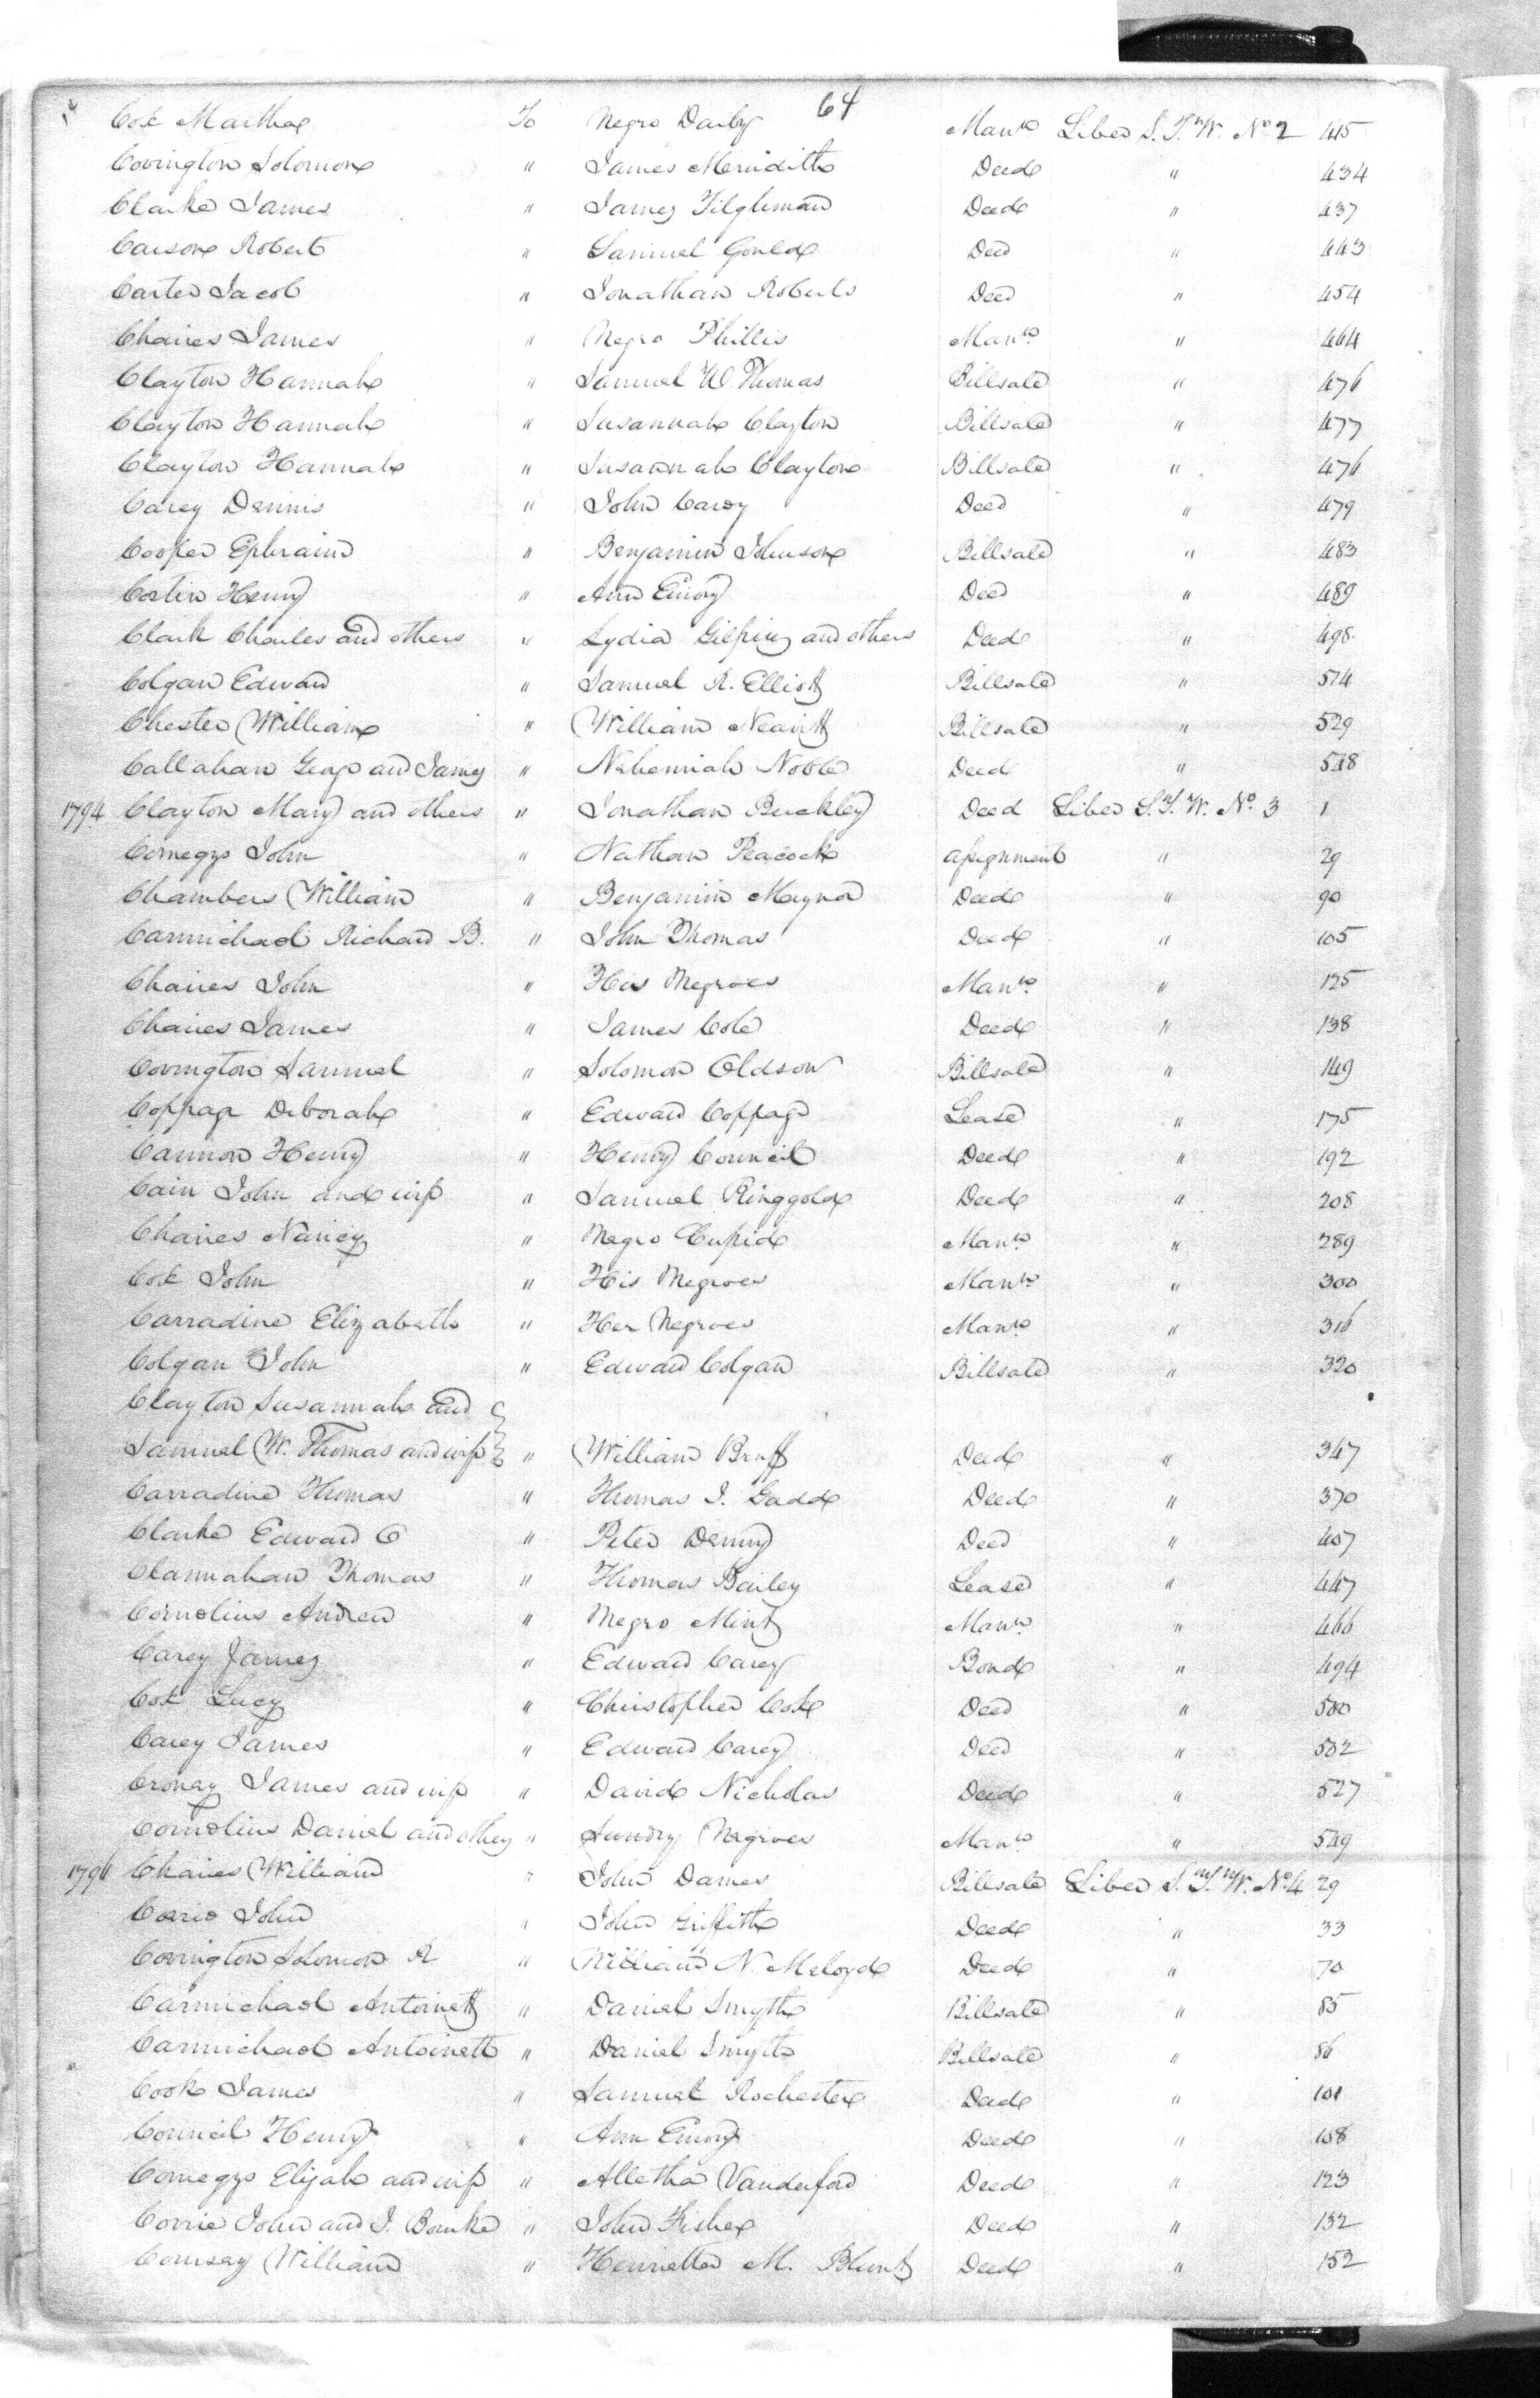 64
Cox Martha To Negro Darby Manˢⁿ Liber S.T.W. Nº 2 415
Covington Solomon " James Meridith Deed " 434
Clarke James " James Tilghman Deed " 437
Carson Robert " Samuel Gould Deed " 443
Carter Jacob " Jonathan Roberts Deed " 454
Chaires James " Negro Phillis Manˢⁿ " 464
Clayton Hannah " Samuel W. Thomas Billsale " 476
Clayton Hannah " Susannah Clayton Billsale " 477
Clayton Hannah " Susannah Clayton Billsale " 476
Carey Dennis " John Carey Deed " 479
Cooper Ephraim " Benjamin Johnson Billsale " 483
Costin Henry " Ann Emory Deed " 489
Clark Charles and others " Lydia Gilpin and others Deed " 498
Colgan Edward " Samuel R. Elliott Billsale " 514
Chester William " William Neavitt Billsale " 529
Callahan George and James " Nehemiah Noble Deed " 548
1794 Clayton Mary and others " Jonathan Buckley Deed Liber S.T.W. Nº 3 1
Comegys John " Nathan Peacock Assignment " 29
Chambers William " Benjamin Maynor Deed " 90
Carmichael Richard B. " John Thomas Deed " 105
Chaires John " His Negroes Manˢⁿ " 125
Chaires James " James Cole Deed " 138
Covington Samuel " Solomon Oldson Billsale " 149
Coppage Deborah " Edward Coppage Lease " 175
Cannon Henry " Henry Council Deed " 192
Cain John and wife " Samuel Ringgold Deed " 208
Chaires Nancy " Negro Cupid Manˢⁿ " 289
Cox John " His Negroes Manˢⁿ " 300
Carradine Elizabeth " Her Negroes Manˢⁿ " 316
Colgan John " Edward Colgan Billsale " 320
Clayton Susannah and
Samuel W. Thomas and wife " William Bruff Deed " 347
Carradine Thomas " Thomas I. Gadd Deed " 370
Clarke Edward C " Peter Denny Deed " 407
Clannahan Thomas " Thomas Bailey Lease " 447
Cornelius Andrew " Negro Mint Manˢⁿ " 466
Carey James " Edward Carey Bond " 494
Cox Lucy " Christopher Cox Deed " 500
Carey James " Edward Carey Deed " 502
Croney James and wife " David Nicholas Deed " 527
Cornelius Daniel and others " Sundry Negroes Manˢⁿ " 549
1796 Chaires William " John Dames Billsale Liber S.T.W. Nº 4 29
John " John Griffith Deed " 33
Covington Solomon R " William N. Meloyd Deed " 70
Carmichael Antoinett " Daniel Smyth Billsale " 85
Carmichael Antoinett " Daniel Smyth Billsale " 86
Cook James " Samuel Rochester Deed " 101
Council Henry " Ann Emory Deed " 108
Comegys Elijah and wife " Alletha Vanderford Deed " 123
Corrie John and J. Bourke " John Fisher Deed " 132
Coursey William " Henrietta M. Blunt Deed " 152